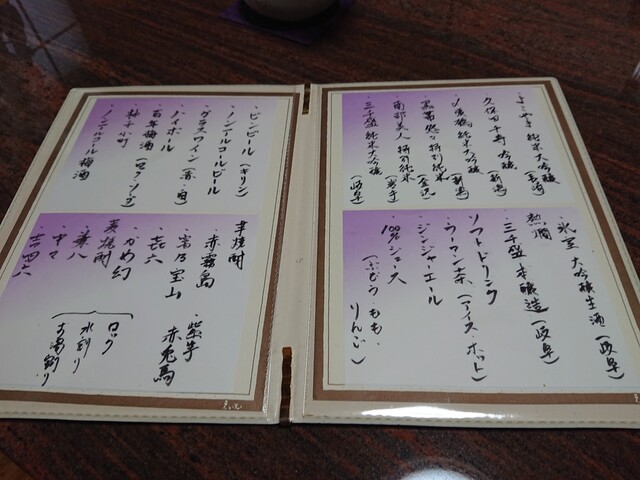 純米大吟醸
久保田千寿 吟醸（新潟）
純米大吟醸（新潟）
特別純米（金沢）
南部美人 特別純米（岩手）
三千盛 純米大吟醸（岐阜）
氷室 大吟醸生酒（岐阜）
熱燗
三千盛 本醸造（岐阜）
ソフトドリンク
・ウーロン茶（アイス・ホット）
・ジンジャーエール
・100%ジュース
（ぶどう・もも・りんご）
・ビンビール（キリン）
・ノンアルコールビール
・グラスワイン（赤・白）
・ハイボール
・百年梅酒（ロック・ソーダ）
・林子小町
・ノンアルコール梅酒
芋焼酎
・赤霧島
・富乃宝山
・㐂六
・紫芋
赤兎馬
・かめ幻
麦焼酎
・兼八
・中々
・吉四六
ロック
水割り
お湯割り